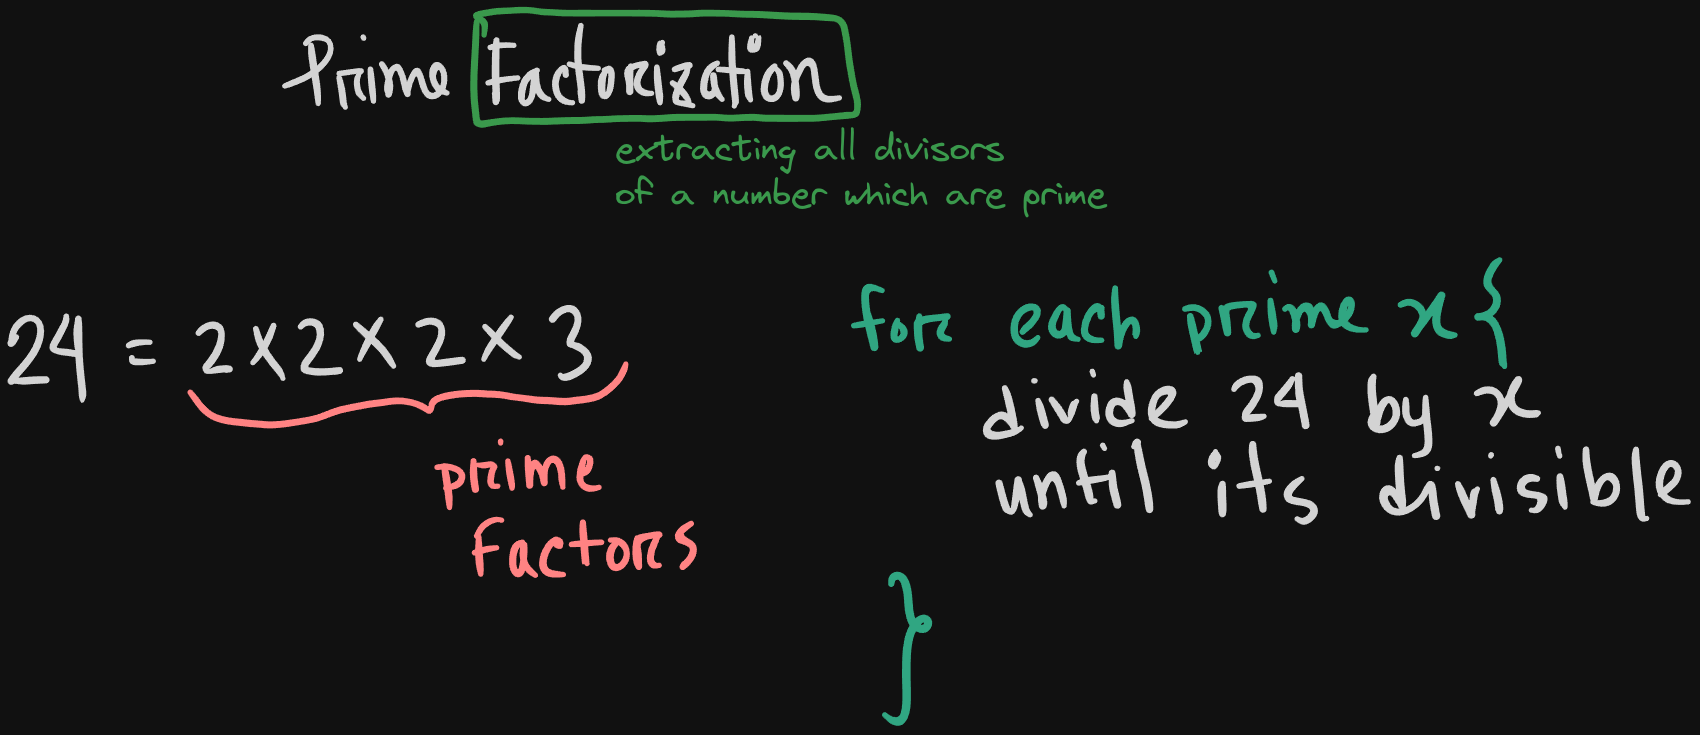 Prime Factorization
extracting all divisors
of a number which are prime
24 = 2 x 2 x 2 x 3
prime
factors
for each prime x {
divide 24 by x
until its divisible
}